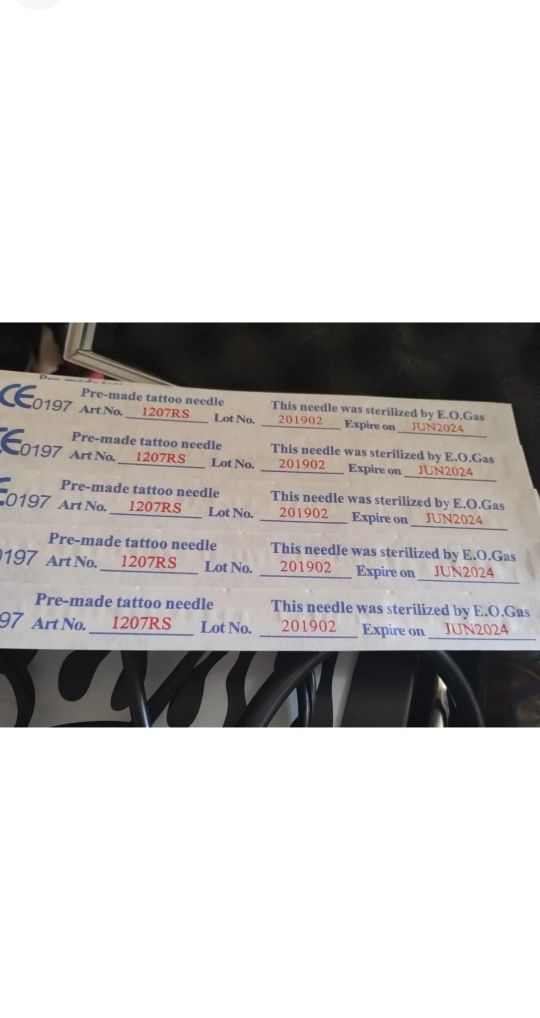 CE0197 Pre-made tattoo needle This needle was sterilized by E.O.Gas
Art No. 1207RS Lot No. 201902 Expire on JUN2024
CE0197 Pre-made tattoo needle This needle was sterilized by E.O.Gas
Art No. 1207RS Lot No. 201902 Expire on JUN2024
E0197 Pre-made tattoo needle This needle was sterilized by E.O.Gas
Art No. 1207RS Lot No. 201902 Expire on JUN2024
197 Pre-made tattoo needle This needle was sterilized by E.O.Gas
Art No. 1207RS Lot No. 201902 Expire on JUN2024
97 Pre-made tattoo needle This needle was sterilized by E.O.Gas
Art No. 1207RS Lot No. 201902 Expire on JUN2024